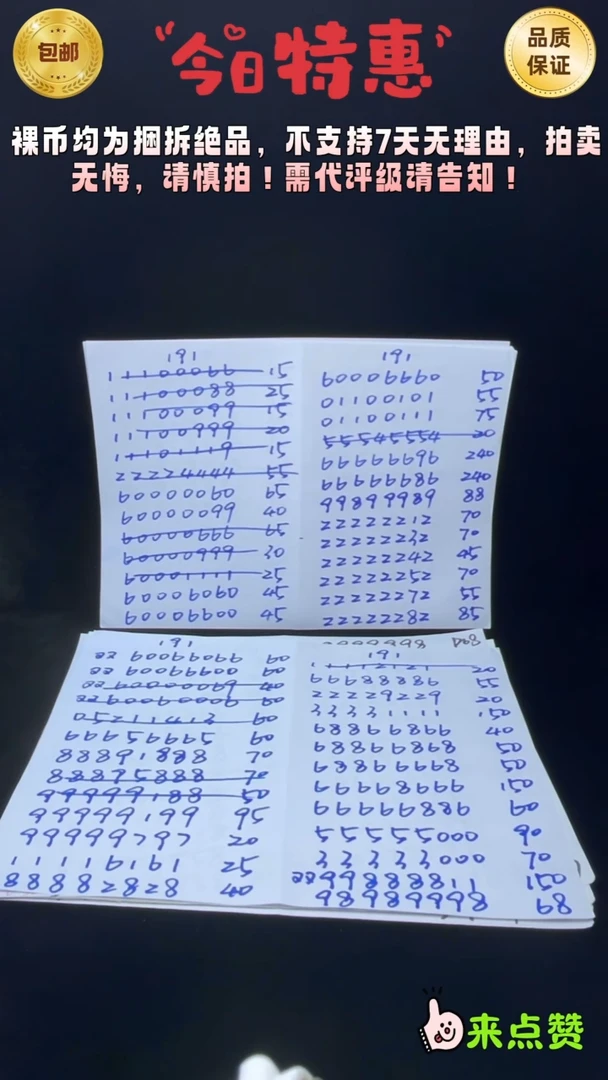 包邮
今日特惠
品质
保证
裸币均为捆拆绝品，不支持7天无理由，拍卖
无悔，请慎拍！需代评级请告知！
191
11100066 15
11100088 25
11100099 15
11100999 20
11101119 15
22224444 55
60000060 65
60000099 40
60000666 65
60000999 30
60001111 25
60006060 45
60006600 45
191
60006660 50
01100101 55
01100111 75
55545554 20
66666696 240
66666686 240
99899989 88
22222212 70
22222232 70
22222242 45
22222252 70
22222272 55
22222282 85
191
60066066 60
60066600 60
60000069 40
60600060 60
05211413 60
66656665 60
88891888 70
88875888 70
99999188 50
99999199 95
99999797 20
11116161 25
88882828 40
191
11112121 20
66688886 55
22229229 20
33331111 150
68866866 40
68866868 50
68866668 50
66668666 150
66666886 60
55555000 90
33333000 70
66888811 150
98686668 89
来点赞